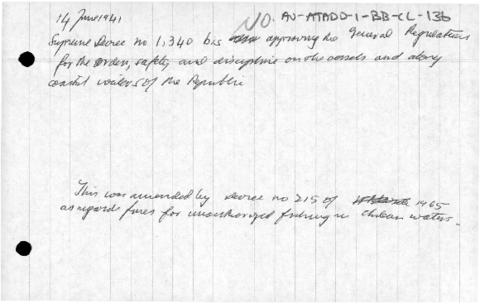 14 June 1941
NO. AU-ATADD-1-BB-CL-136
Supreme Decree no 1,340 bis approving the General Regulations
for the Order, safety and discipline on the vessels and along
coastal waters of the Republic
This was amended by Decree no 215 of 1965
as regards fines for unauthorized fishing in Chilean waters.